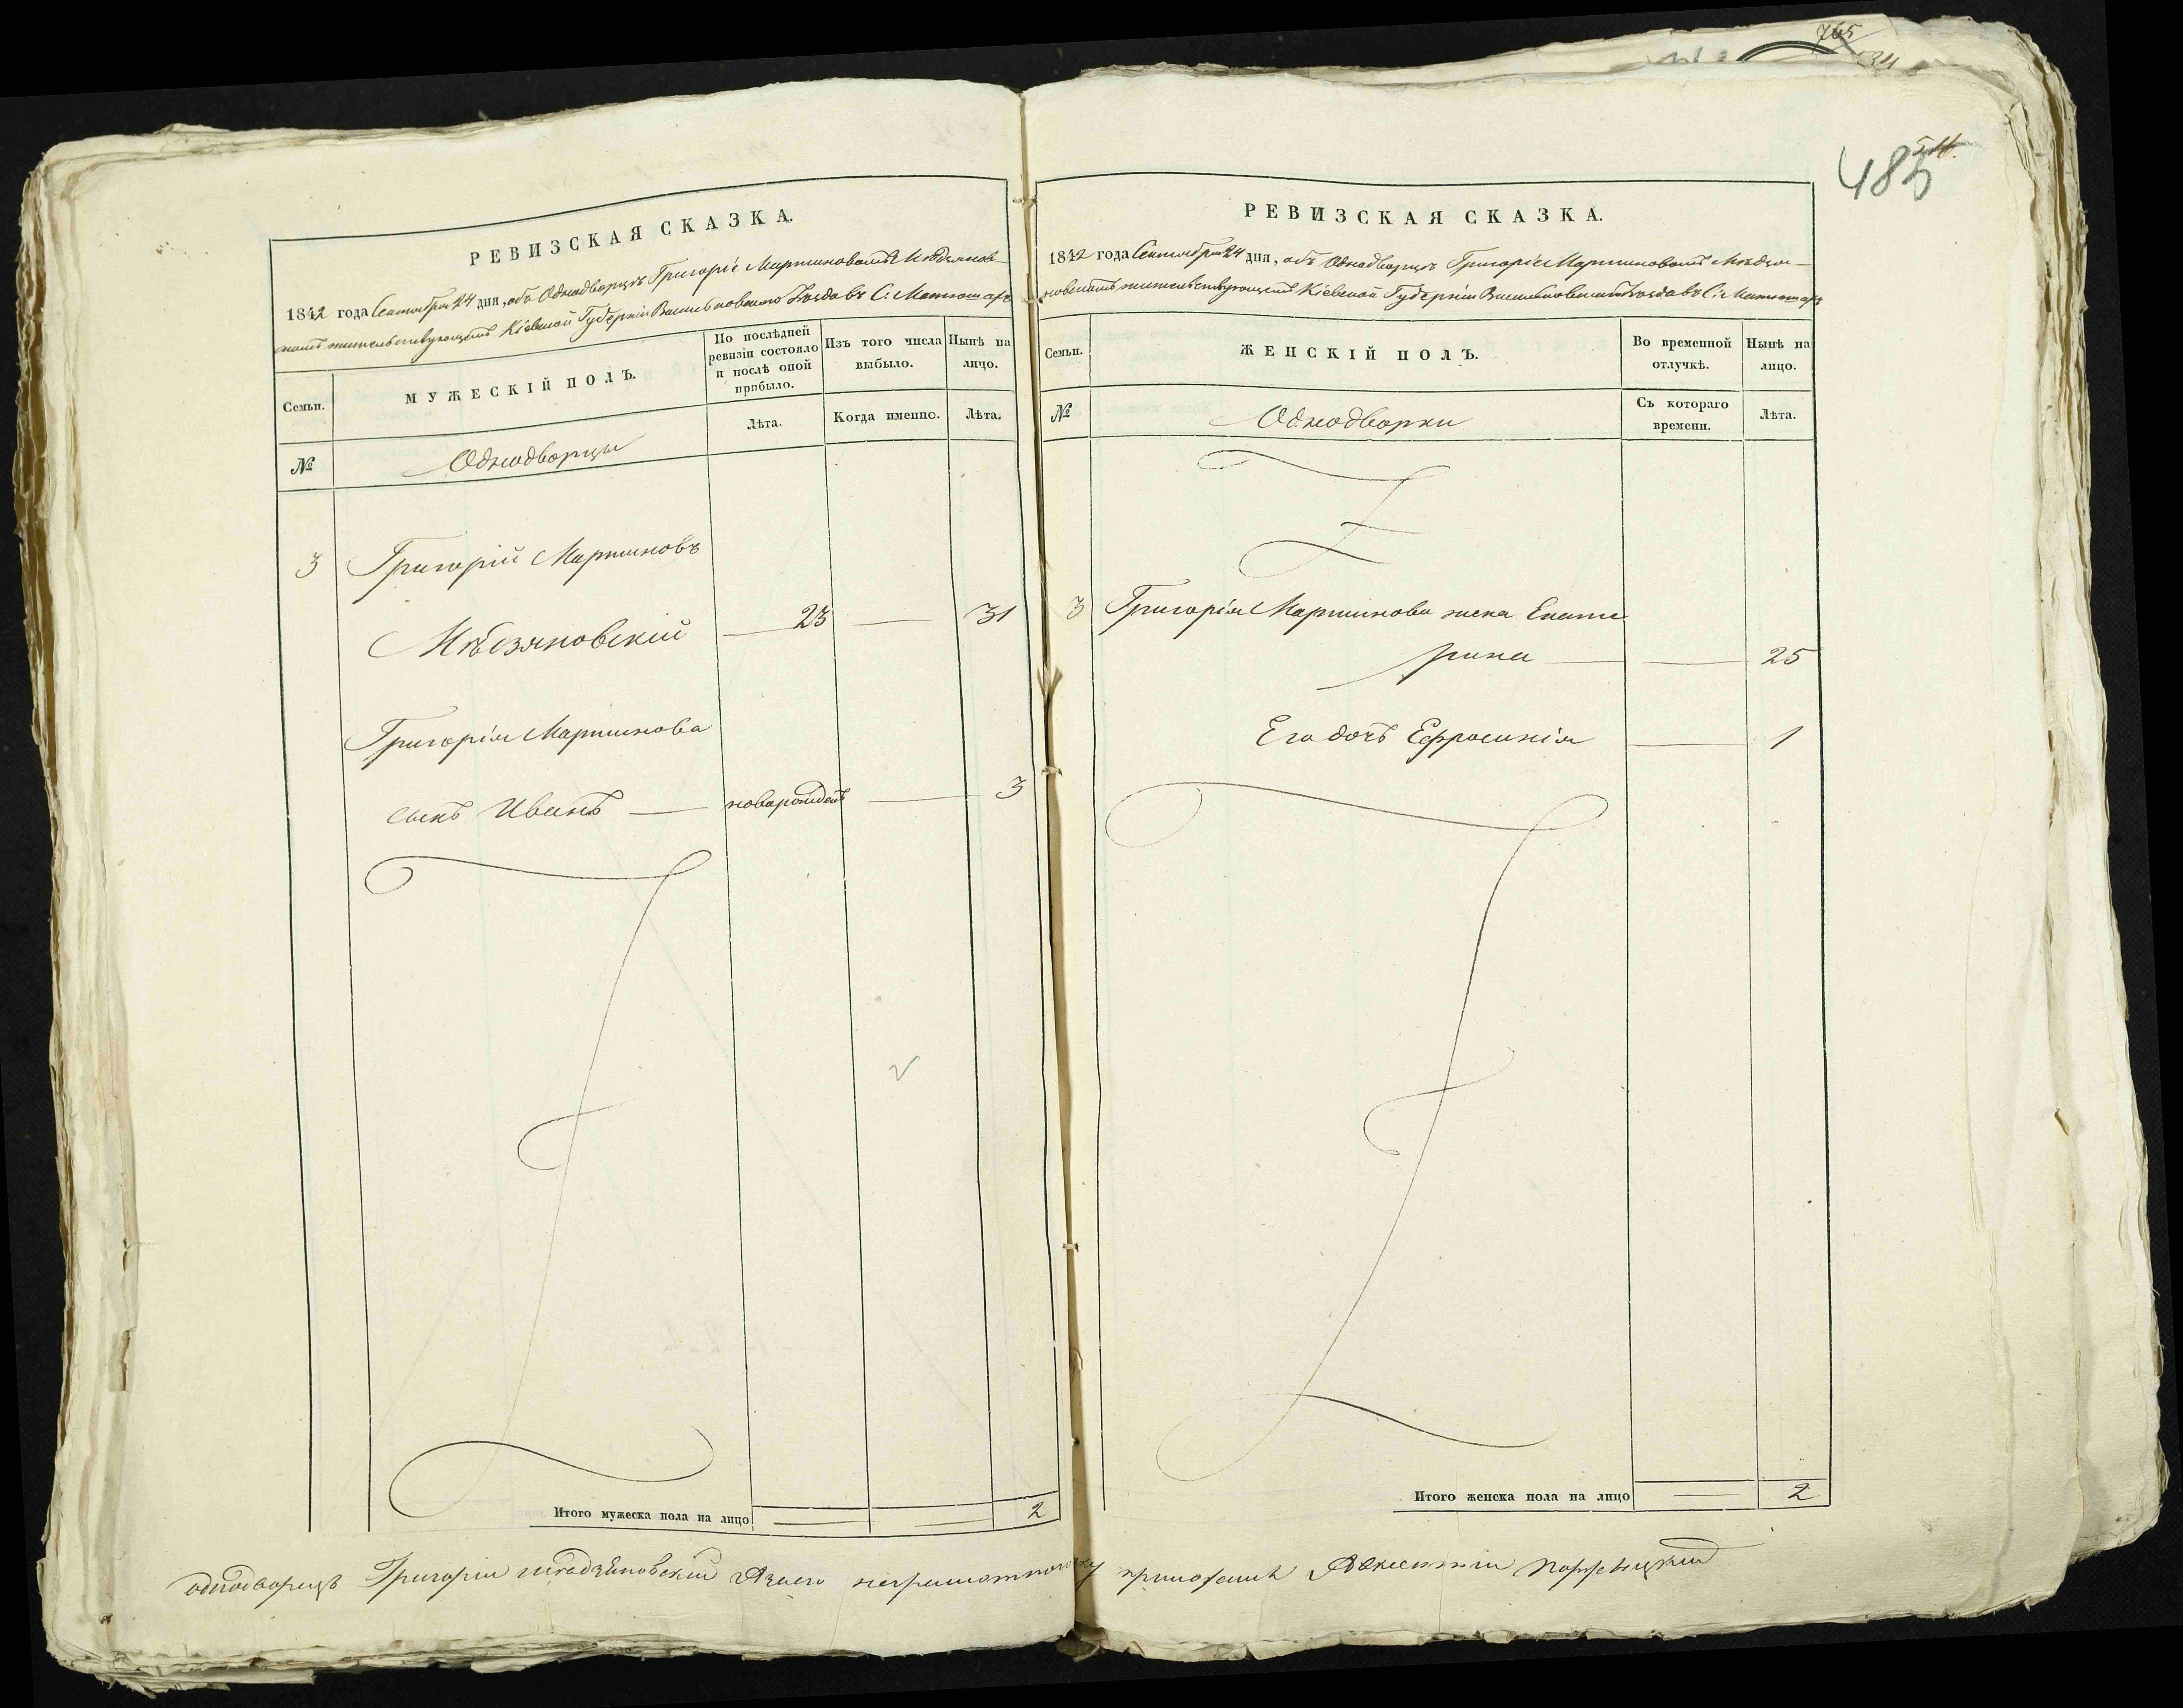 765
34
483
511.
РЕВИЗСКАЯ СКАЗКА.
1842 года Сентября 24 дня, объ Однодворцѣ Григоріе Мартиновомъ
жительствующемъ Кіевской Губерніи Васильковскаго Уѣзда въ С:
Семьи.
МУЖЕСКІЙ ПОЛЪ.
По послѣдней ревизіи состояло и послѣ оной прибыло.
Изъ того числа выбыло.
Нынѣ на лицо.
№
Однодворцы
Лѣта.
Когда именно.
Лѣта.
3 Григорій Мартиновъ
23 — 31
Григорія Мартинова
сынъ Иванъ — новорожденъ — 3
Итого мужеска пола на лицо 2
РЕВИЗСКАЯ СКАЗКА.
1842 года Сентября 24 дня, объ Однодворцѣ Григоріе Мартиновомъ
жительствующемъ Кіевской Губерніи Васильковскаго Уѣзда въ С:
Семьи.
ЖЕНСКІЙ ПОЛЪ.
Во временной отлучкѣ.
Нынѣ на лицо.
№
Однодворки
Съ котораго времени.
Лѣта.
3 Григорія Мартинова жена Екате
рина — — 25
Его дочь Ефросинія — 1
Итого женска пола на лицо 2
однодворецъ Григорій